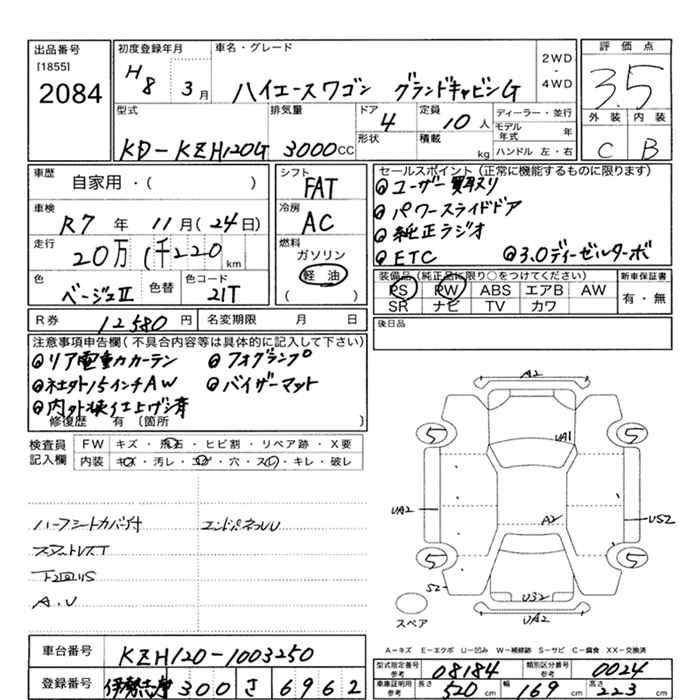 出品番号
[1855]
2084
初度登録年月
H8 3月
車名・グレード
ハイエースワゴン グランドキャビンG
2WD
・
4WD
評価点
3.5
外装 内装
C B
型式
KD-KZH120G
排気量
3000CC
ドア
4
定員
10人
形状
積載
kg
ディーラー・並行
モデル年式 年
ハンドル 左・右
車歴
自家用・( )
車検
R7年 11月(24日)
走行
20万(千)220km
色
ベージュII
色替
色コード
21T
シフト
FAT
冷房
AC
燃料
ガソリン
軽油
( )
セールスポイント(正常に機能するものに限ります)
◎ユーザー買取り
◎パワースライドドア
◎純正ラジオ
◎ETC ◎3.0ディーゼルターボ
装備品(純正品に限り○をつけてください)
PS PW ABS エアB AW
SR ナビ TV カワ
新車保証書
有・無
R券 12580円
名変期限 月 日
後日品
注意事項申告欄(不具合内容等は具体的に記入して下さい)
◎リア電動カーテン ◎フォグランプ
◎社外15インチAW ◎バイザーマット
◎内外装仕上げ済
修復歴 有〔箇所 〕
検査員記入欄
FW キズ・飛石・ヒビ割・リペア跡・X要
内装 キズ・汚レ・コゲ・穴・スレ・キレ・破レ
ハーフシートカバー付 エンドパネルU
スタットレスT
下回りS
A.U
A2
5
5
UA1
UA2
A2
US2
5
5
S2
U32
UA2
スペア
A-キズ E-エクボ U-凹み W-補修跡 S-サビ C-腐食 XX-交換済
車台番号
KZH120-1003250
登録番号
伊勢志摩 300 さ 6962
型式指定番号
参考
08184
類別区分番号
参考
0024
車庫証明用
参考
長さ 520cm
幅 169cm
高さ 223cm